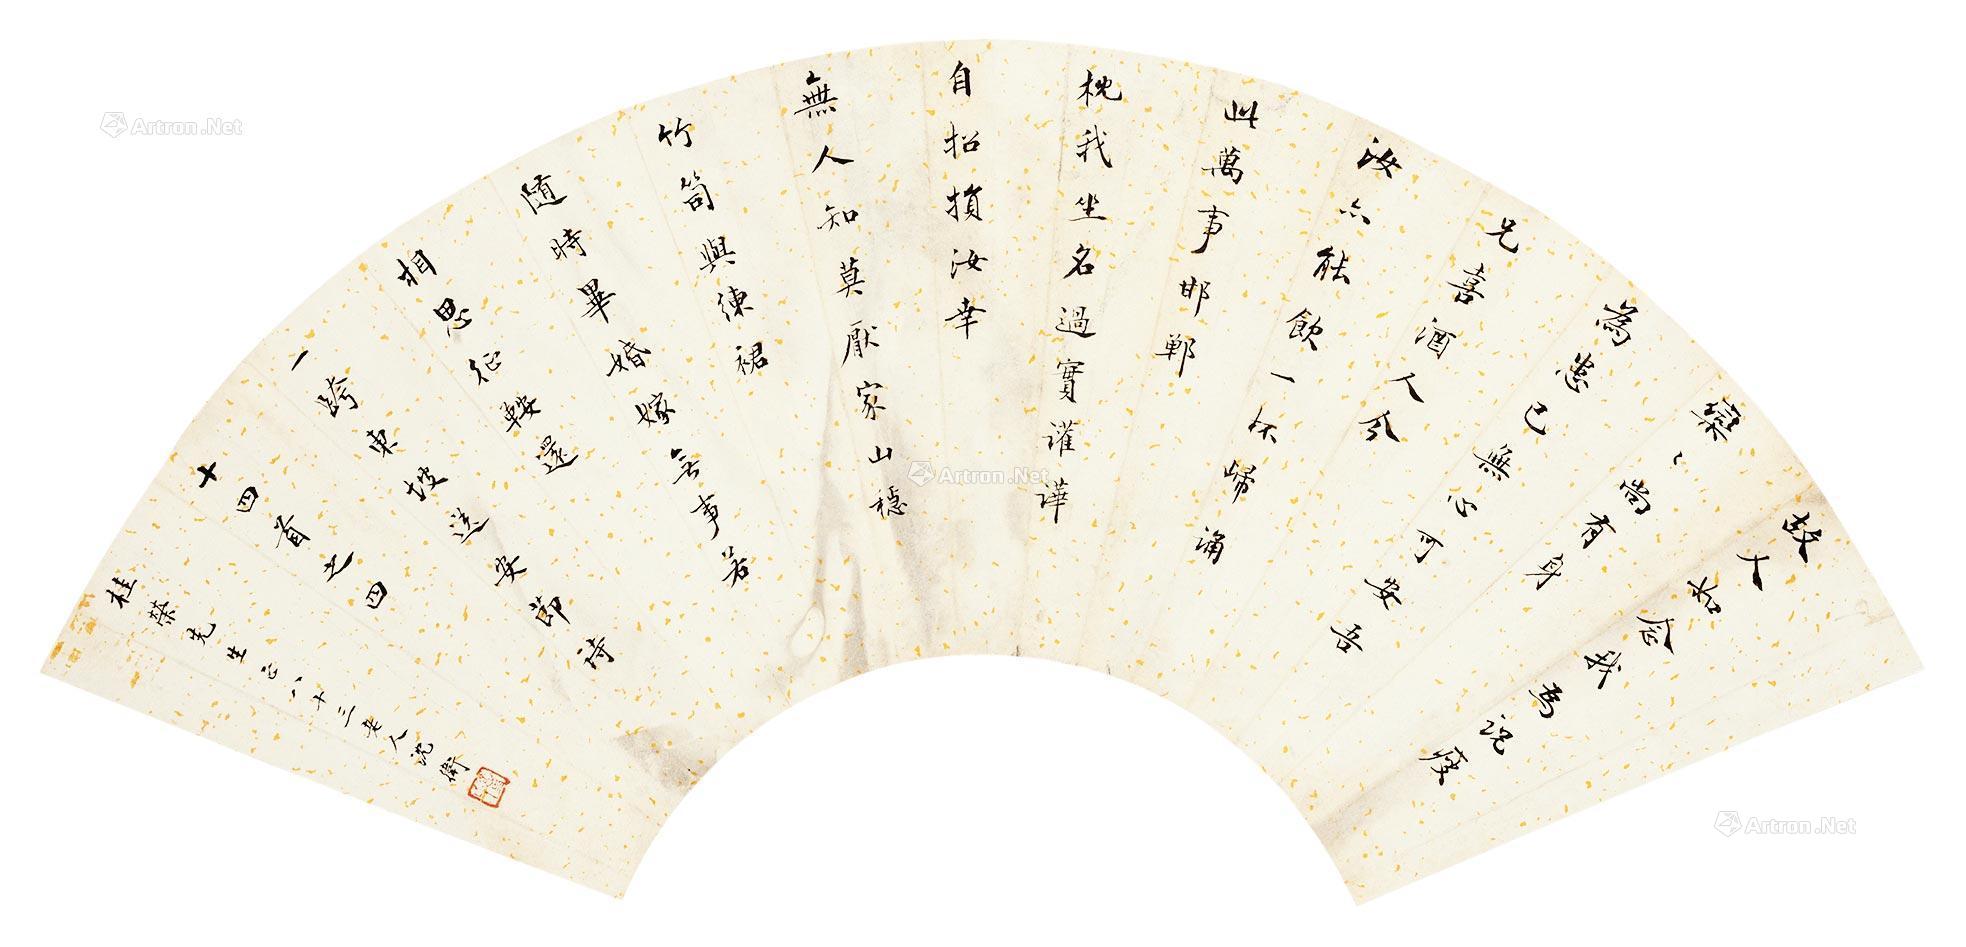 故人如念我為説瘦
欒〻尚有身
為患已無心可安吾
兄喜酒人今
汝亦能飲一杯歸誦
此萬事邯鄲
枕我坐名過實讙譁
自招損汝幸
無人知莫厭家山穩
竹笥與練裙
随時畢婚嫁无事若
相思征鞍還
一跨東坡送安節詩
十四首之四
桂榮先生正八十三老人沈衛
Artron.Net
Artron.Net
Artron.Net